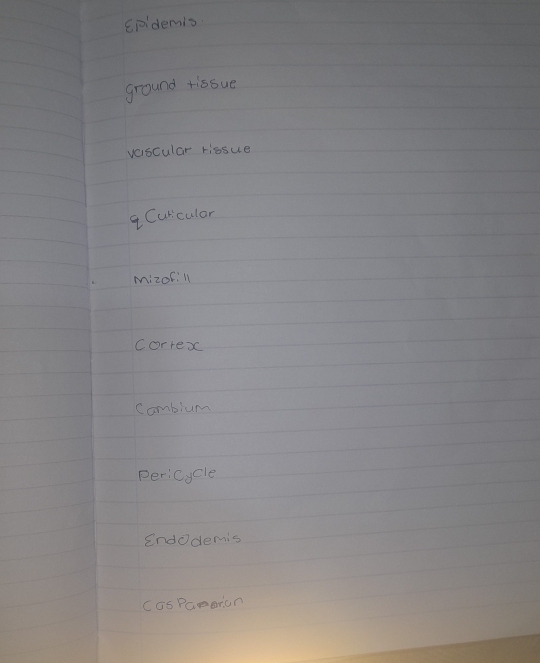 Epidemis
ground tissue
vascular tissue
Cuticular
mizofill
Cortex
Cambium
Pericycle
Endodemis